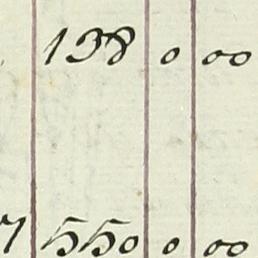 138 0 00
7 550 0 00